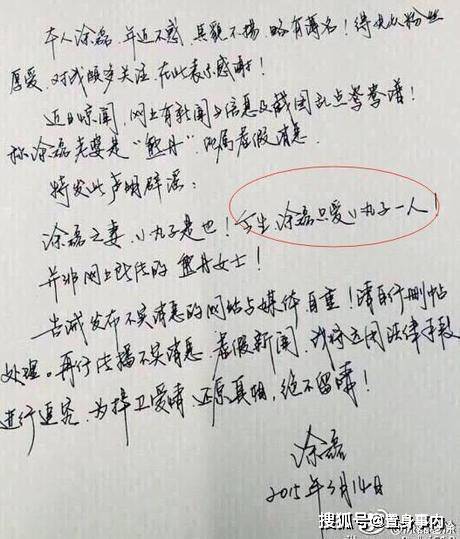 本人涂磊,年近不惑,其貌不扬,略有薄名!得患从粉丝
厚爱,对我颇多关注,在此表示感谢!
近日惊闻,网上有新闻与信息及截图乱点鸳鸯谱!
称涂磊老婆是“熊丹”,此属虚假消息.
特发此声明辟谣:
涂磊之妻,小丸子是也!今生涂磊只爱小丸子一人!
并非网上改法的熊丹女士!
告诫发布不实消息的网站与媒体自重!请自行删帖
处理。再行传播不实消息,虚假新闻,我将运用法律手段
进行追究,为捍卫爱情,还原真相,绝不留情!
涂磊
2015年3月14日
搜狐号@置身事内